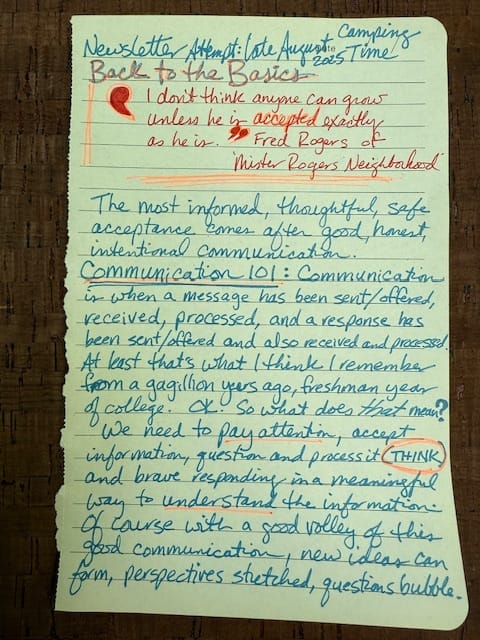 Newsletter Attempt: Late August Camping
Date 2025 Time
Back to the Basics
❛ I don't think anyone can grow
unless he is accepted exactly
as he is. ❞ Fred Rogers of
'Mister Rogers Neighborhood'
The most informed, thoughtful, safe
acceptance comes after good, honest,
intentional communication.
Communication 101: Communication
is when a message has been sent/offered,
received, processed, and a response has
been sent/offered and also received and processed.
At least that's what I think I remember
from a gagillion years ago, freshman year
of college. OK. So what does that mean?
We need to pay attention, accept
information, question and process it (THINK)
and brave responding in a meaningful
way to understand the information.
Of course with a good volley of this
good communication, new ideas can
form, perspectives stretched, questions bubble.